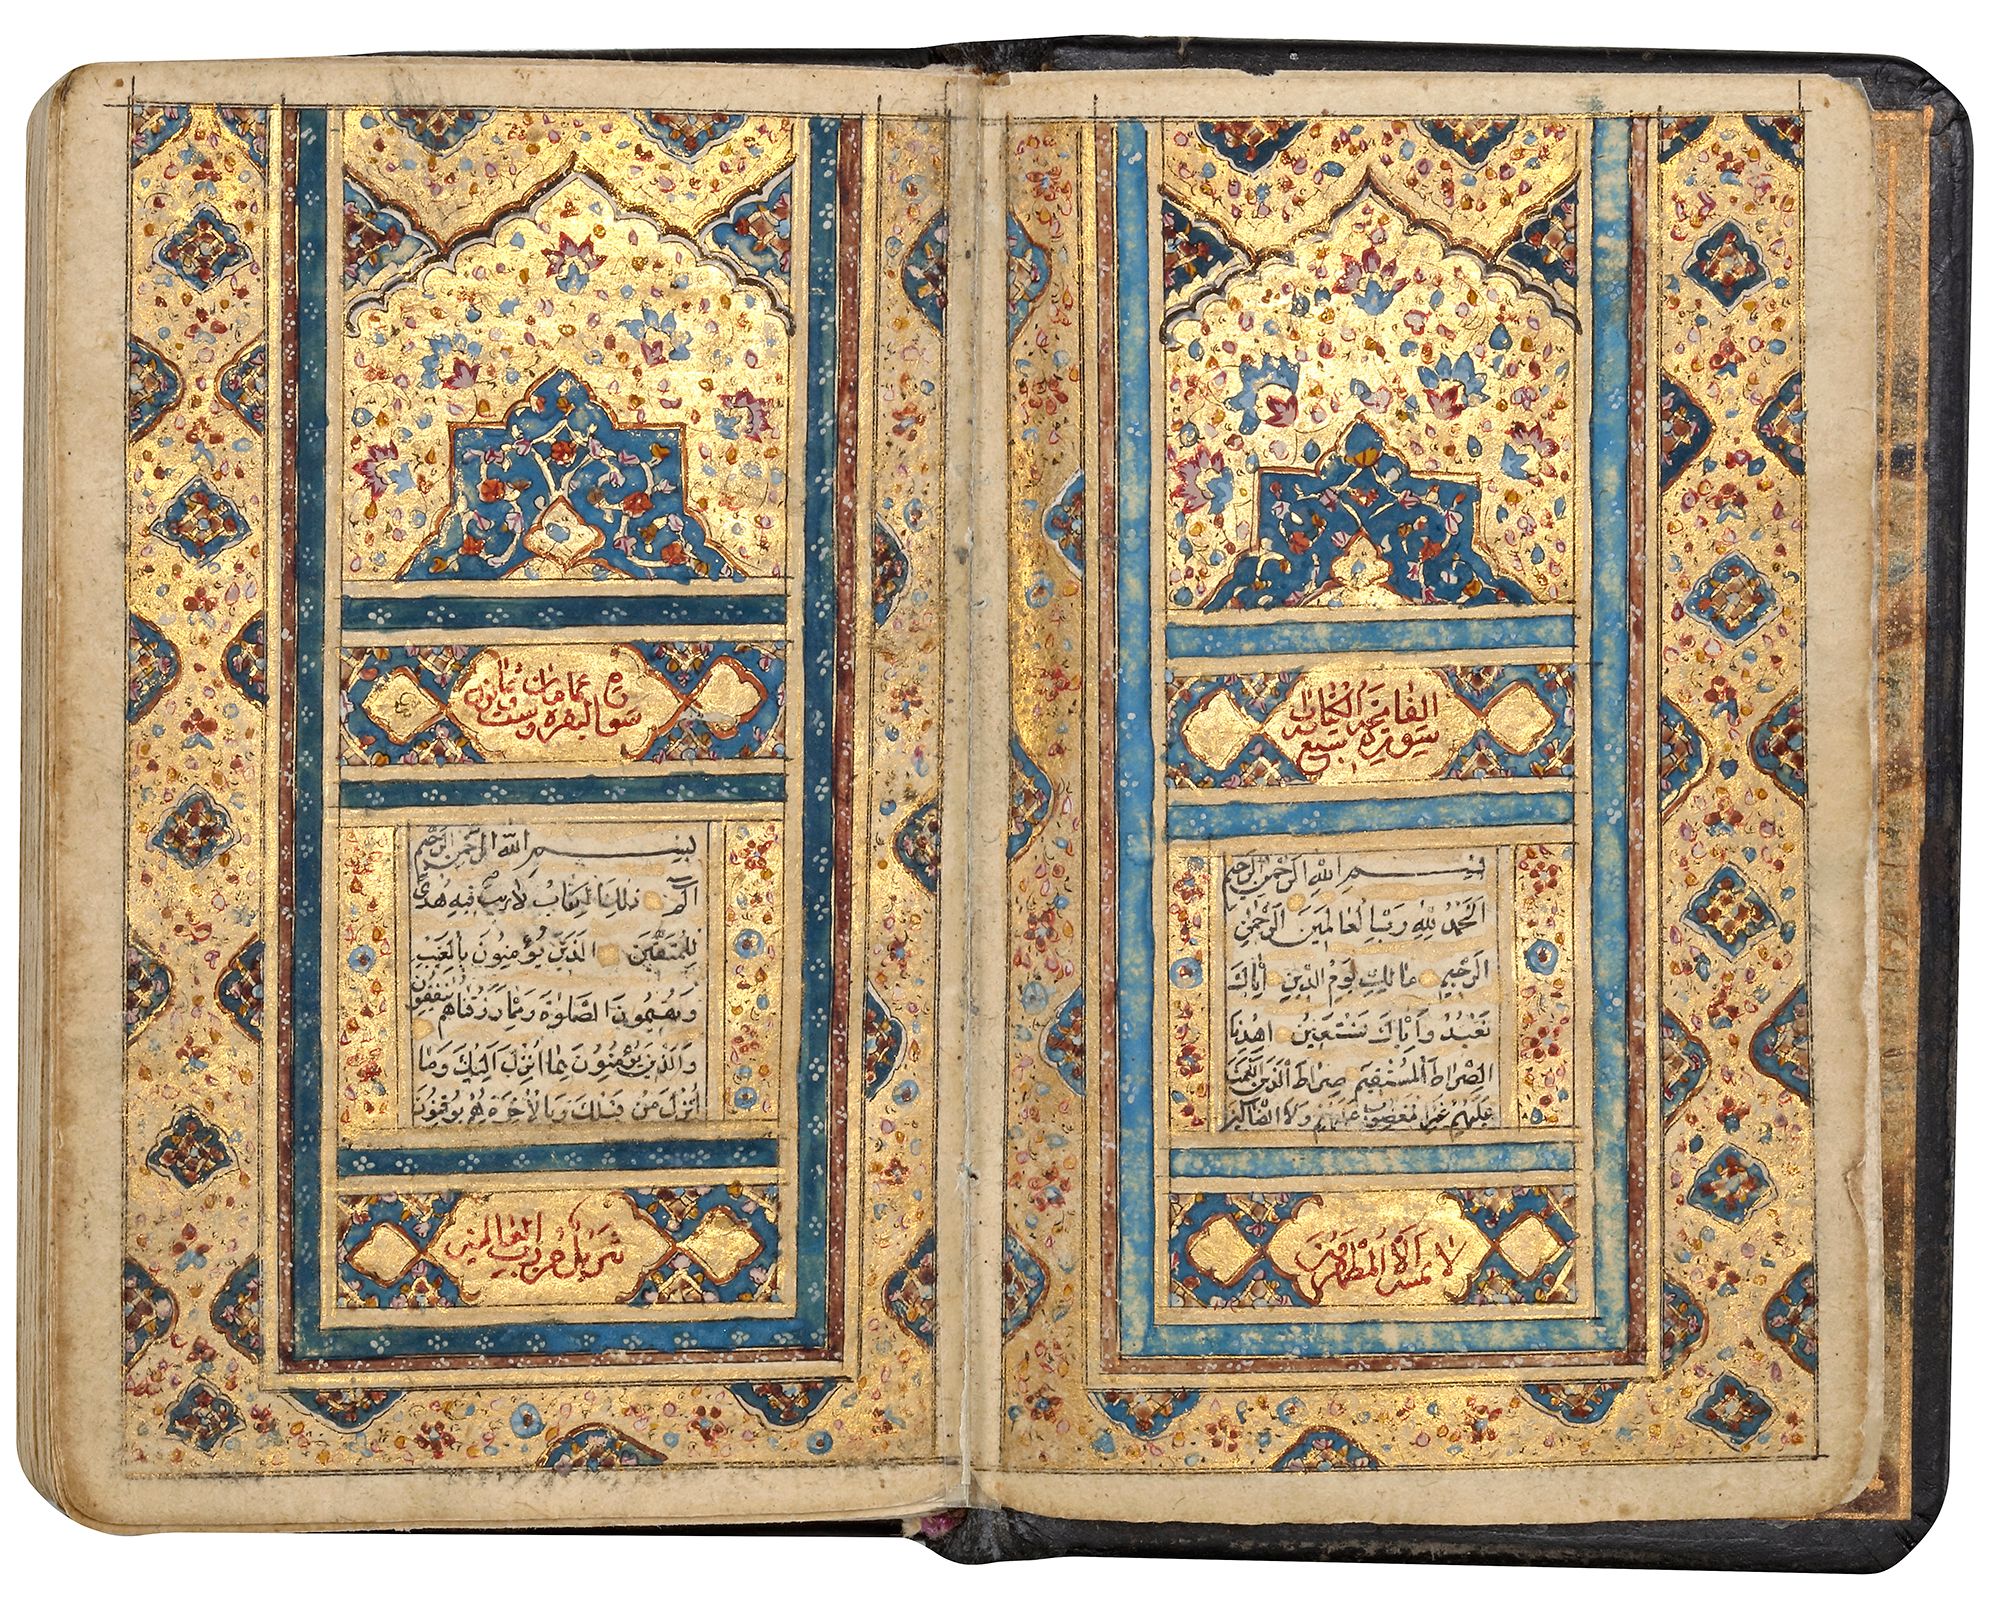 سورة فاتحة الكتاب
سبع
بسم الله الرحمن الرحيم
الحمد لله رب العالمين الرحمن
الرحيم مالك يوم الدين اياك
نعبد واياك نستعين اهدنا
الصراط المستقيم صراط الذين انعمت
عليهم غير المغضوب عليهم ولا الضالين
لا يمسه الا المطهرون
سورة البقرة مائتان وثمانون وست
بسم الله الرحمن الرحيم
الم ذلك الكتاب لا ريب فيه هدى
للمتقين الذين يؤمنون بالغيب
ويقيمون الصلوة ومما رزقناهم ينفقون
والذين يؤمنون بما انزل اليك وما
انزل من قبلك وبالاخرة هم يوقنون
تنزيل من رب العالمين